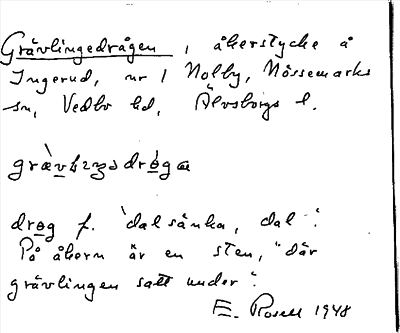 Grävlingedrågen, åkerstycke å
Ingerud, nr 1 Nolby, Nössemarks
sn, Vedbo hd, Älvsborgs l.
drog f. 'dalsänka, dal'.
På åkern är en sten, "där
grävlingen satt under".
E. Rosell 1948